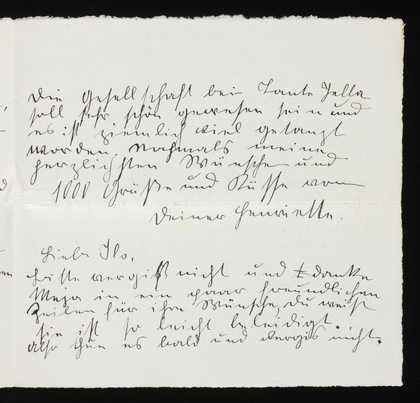 Die Gesellschaft bei Tante Jella
soll sehr schön gewesen sein und
es ist ziemlich viel getanzt
worden Nochmals meine
herzlichsten Wünsche und
1000 Grüße und Küsse von
Deiner Henriette.
Liebe Ilo,
bitte vergiß nicht und danke
in ein paar freundlichen
Zeilen für ihre Wünsche, Du weißt
sie ist so leicht beleidigt.
also thue es bald und vergiß nicht.